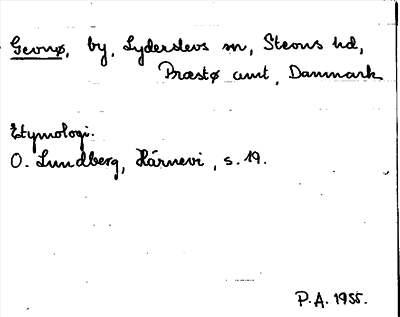 Gevnø, by, Lyderslevs sn, Stevns hd,
Præstø amt, Danmark
Etymologi.
O. Lundberg, Härnevi, s. 19.
P.A. 1955.